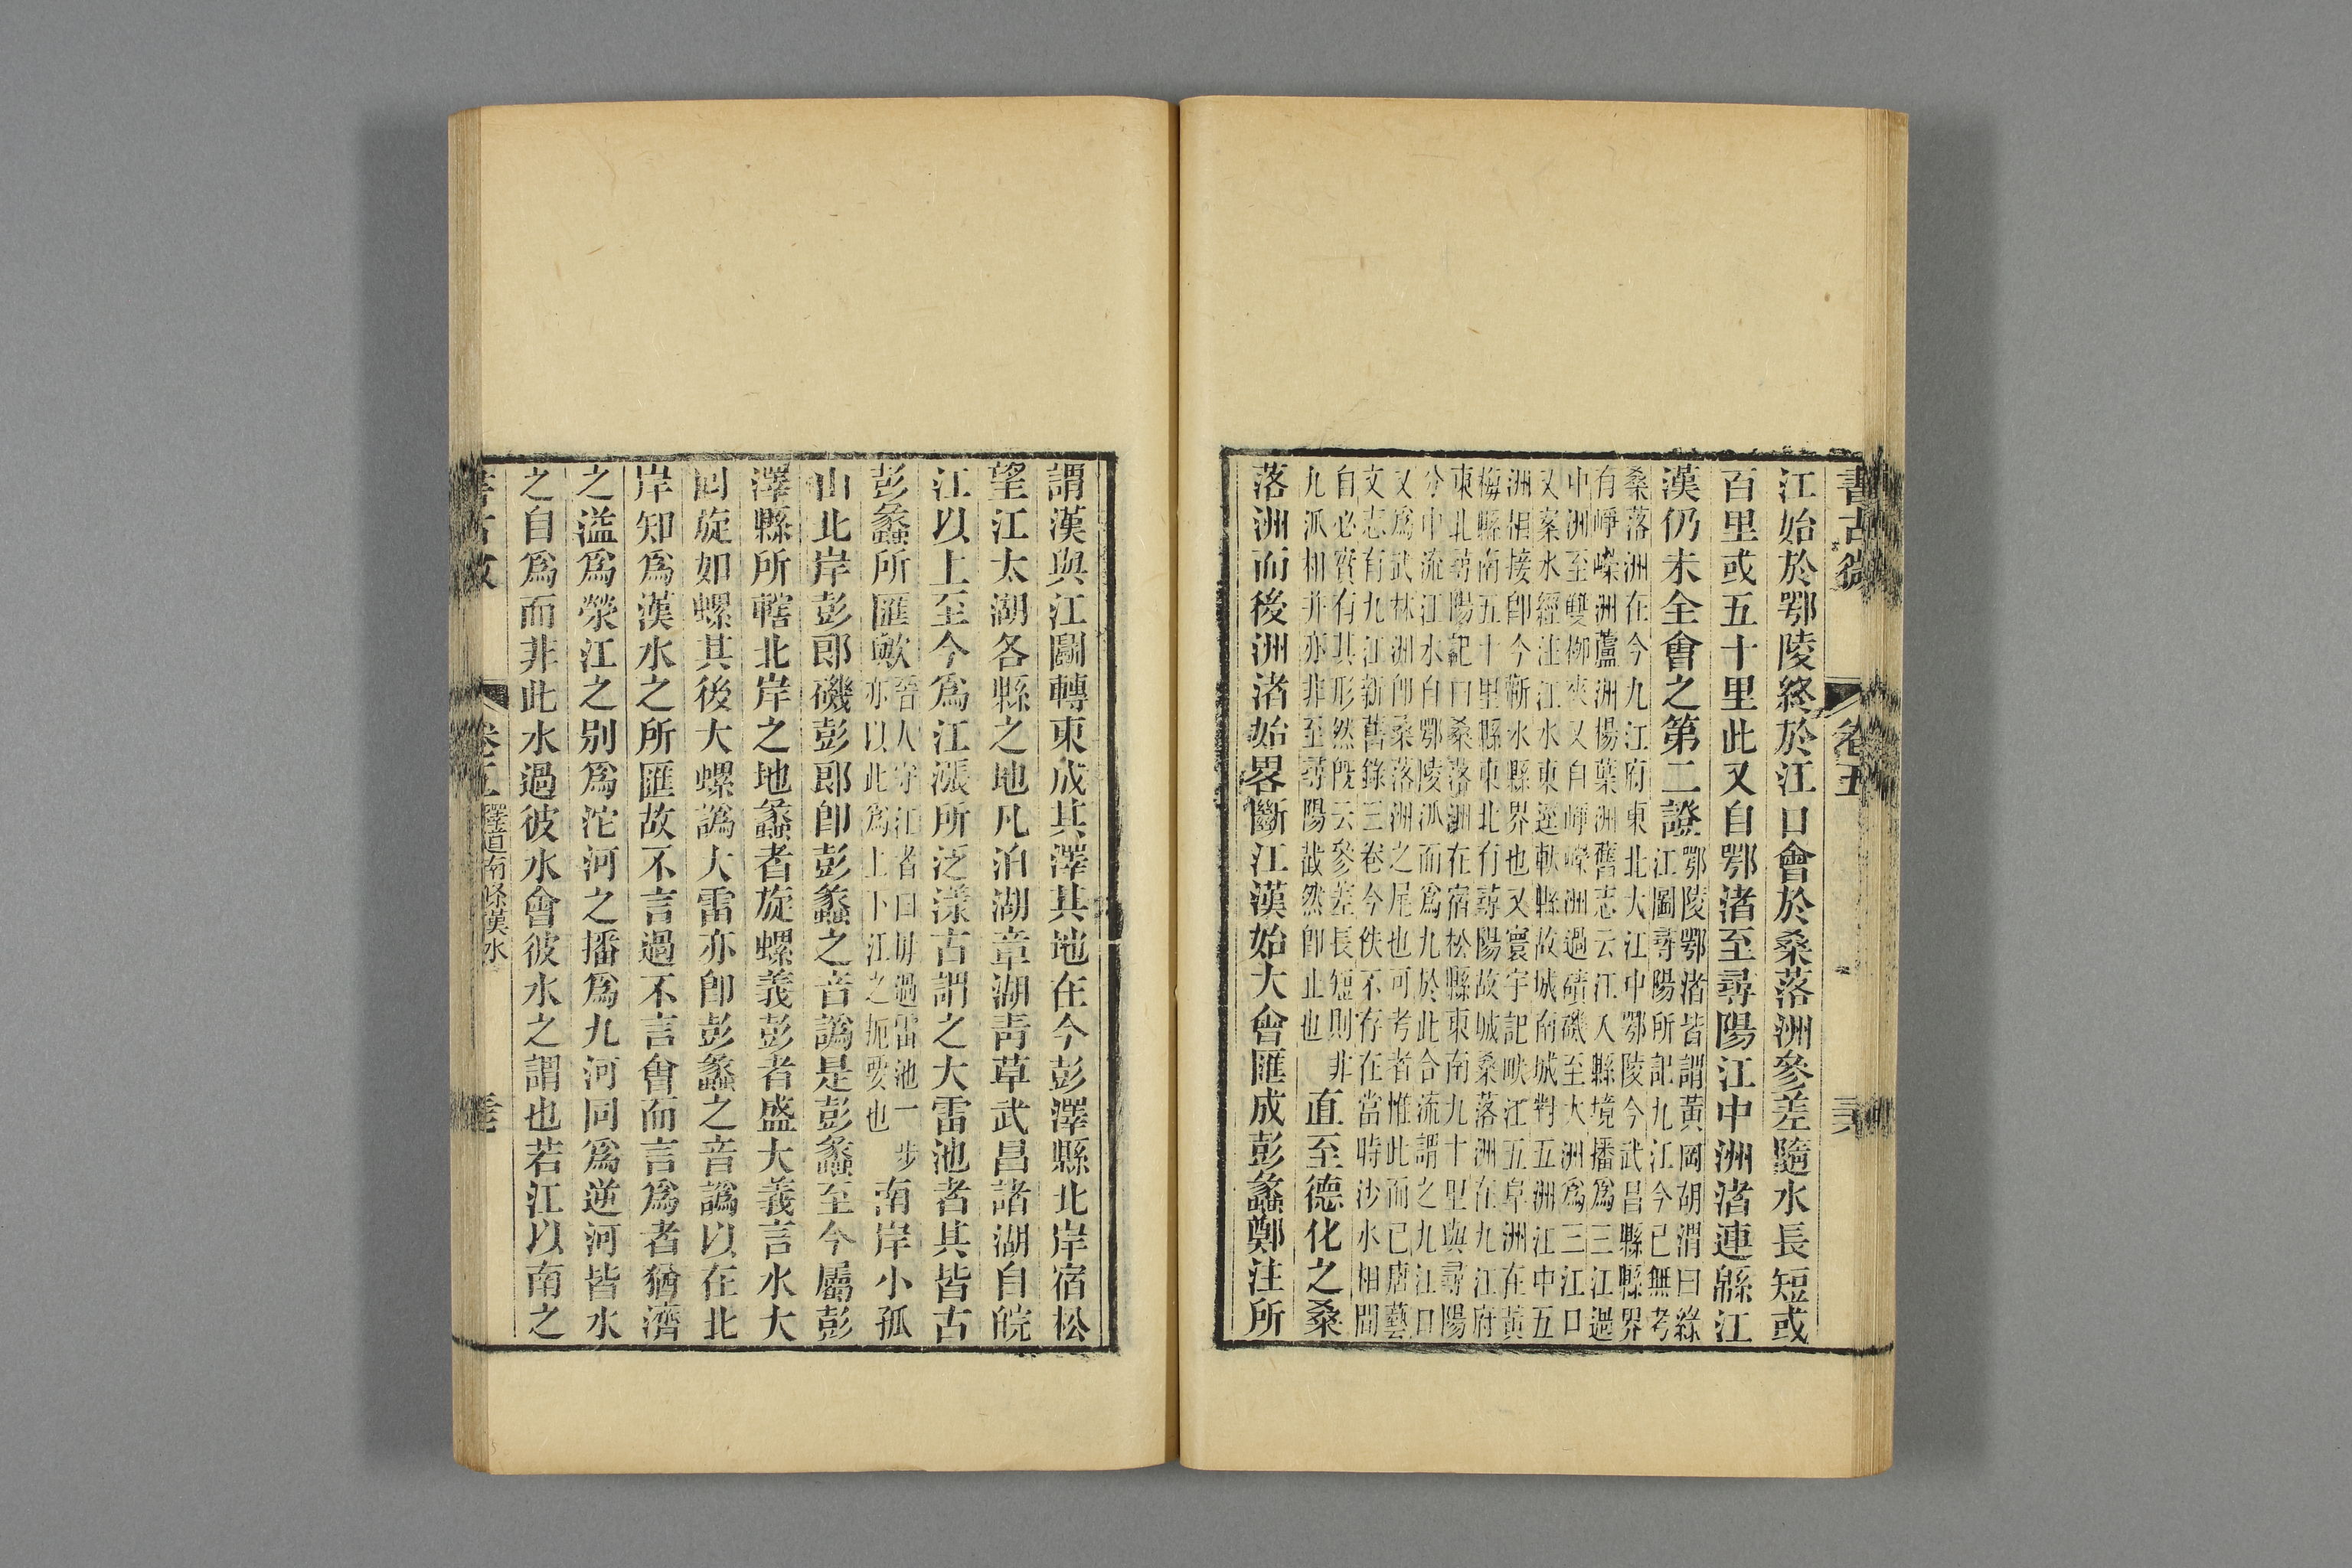 書古微 卷五
江始於鄂陵終於江口會於桑落洲參差隨水長短或
百里或五十里此又自鄂渚至尋陽江中洲渚連緜江
漢仍未全會之第二證鄂陵鄂渚皆謂黃岡胡渭曰緣
江圖尋陽所記九江今已無考
桑落洲在今九江府東北大江中鄂陵今武昌縣界
有崢嶸洲蘆洲楊葉洲舊志云江入縣境播爲三江過
中洲至雙柳夾又自崢嶸洲過磧磯至大洲爲三江口
又案水經注江水東逕軑縣故城南城對五洲江中五
洲相接卽今蘄水縣界也又寰宇記畎江五阜洲在黃
梅縣南五十里縣東北有尋陽故城桑落洲在九江府
東北尋陽記曰桑落洲在宿松縣東南九十里與尋陽
分中流江水自鄂陵派而爲九於此合流謂之九江口
又爲武林洲卽桑落洲之尾也可考者惟此而已唐藝
文志有九江新舊錄三卷今佚不存在當時沙水相間
自必實有其形然旣云參差長短則非
九派相幷亦非至尋陽截然卽止也直至德化之桑
落洲而後洲渚始畧斷江漢始大會匯成彭蠡鄭注所
謂漢與江鬬轉東成其澤其地在今彭澤縣北岸宿松
望江太湖各縣之地凡泊湖章湖靑草武昌諸湖自皖
江以上至今爲江漲所泛漾古謂之大雷池者其皆古
彭蠡所匯歟晉人守江者曰毋過雷池一步
亦以此爲上下江之扼要也南岸小孤
山北岸彭郎磯彭郎卽彭蠡之音譌是彭蠡至今屬彭
澤縣所轄北岸之地蠡者旋螺義彭者盛大義言水大
回旋如螺其後大螺譌大雷亦卽彭蠡之音譌以在北
岸知爲漢水之所匯故不言過不言會而言爲者猶濟
之溢爲滎江之别爲沱河之播爲九河同爲逆河皆水
之自爲而非此水過彼水會彼水之謂也若江以南之
書古微 卷五 釋道南條漢水